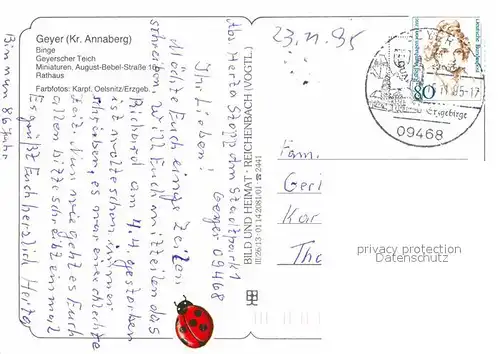 Geyer (Kr. Annaberg)
Binge
Geyerscher Teich
Miniaturen, August-Bebel-Straße 16
Rathaus
Farbfotos: Karpf, Oelsnitz/Erzgeb.
23.11.95
Abs. Herta Stopp Am Stadtpark 1
Geyer 09468
Ihr Lieben!
Möchte Euch einige Zeilen
schreiben will Euch mitteilen das
Richard am 4.4. gestorben
ist wollte schon immer
schreiben, es war eine schlechte
Zeit. Nun wie geht es Euch
allen bitte schreibt einmal
Es grüßt Euch herzlich Herta
Bin nun 86 Jahr
BILD UND HEIMAT · REICHENBACH (VOGTL)
III/26/13 · 01 14 2081/01 ☎ 2441
Deutsche Bundespost
80
09468
Erzgebirge
Fam.
Geri
Kar
Tho
privacy protection
Datenschutz